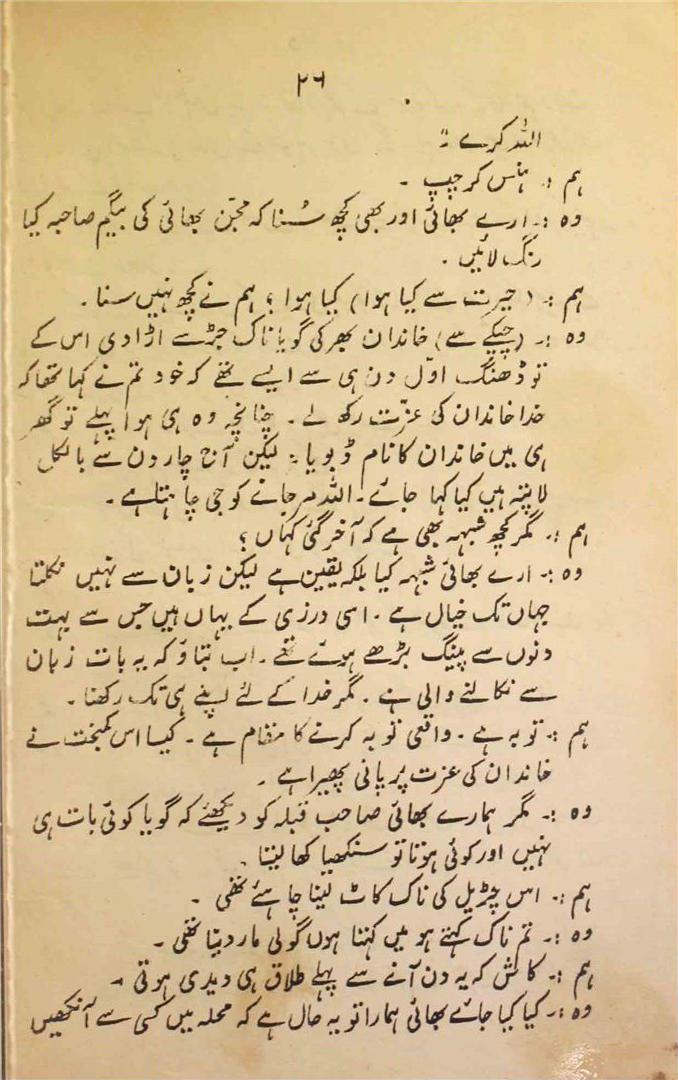 ۲۶
اللہ کرے ؎"
ہم :۔ ہنس کر چپ ۔
وہ :۔ ارے بھائی اور بھی کچھ سُنا کہ مجّن بھائی کی بیگم صاحبہ کیا
رنگ لائیں ۔
ہم :۔ (حیرت سے کیا ہوا) کیا ہوا ؟ ہم نے کچھ نہیں سنا ۔
وہ :۔ (چپکے سے) خاندان بھر کی گویا ناک جڑ سے اڑا دی اس کے
تو ڈھنگ اوّل دن ہی سے ایسے تھے کہ خود تم نے کہا تھا کہ
خدا خاندان کی عزّت رکھ لے ۔ چنانچہ وہ ہی ہوا پہلے تو گھر
ہی میں خاندان کا نام ڈبویا ۔ لیکن آج چار دن سے بالکل
لاپتہ ہیں کیا کہا جائے ۔ اللہ مر جانے کو جی چاہتا ہے ۔
ہم :۔ مگر کچھ شبہہ بھی ہے کہ آخر گئی کہاں ؟
وہ :۔ ارے بھائی شبہہ کیا بلکہ یقین ہے لیکن زبان سے نہیں نکلتا
جہاں تک خیال ہے ۔ اسی درزی کے یہاں ہیں جس سے بہت
دنوں سے پینگ بڑھے ہوئے تھے ۔ اب بتاؤ کہ یہ بات زبان
سے نکالنے والی ہے ۔ مگر خدا کے لئے اپنے ہی تک رکھنا ۔
ہم :۔ توبہ ہے ۔ واقعی توبہ کرنے کا مقام ہے ۔ کیسا اس کمبخت نے
خاندان کی عزت پر پانی پھیرا ہے ۔
وہ :۔ مگر ہمارے بھائی صاحب قبلہ کو دیکھئے کہ گویا کوئی بات ہی
نہیں اور کوئی ہوتا تو سنکھیا کھا لیتا ۔
ہم :۔ اس چڑیل کی ناک کاٹ لینا چاہئے تھی ۔
وہ :۔ تم ناک کہتے ہو میں کہتا ہوں گولی مار دیتا تھی ۔
ہم :۔ کاش کہ یہ دن آنے سے پہلے طلاق ہی دیدی ہوتی ۔
وہ :۔ کیا کیا جائے بھائی ہمارا تو یہ حال ہے کہ محلہ میں کسی سے آنکھیں